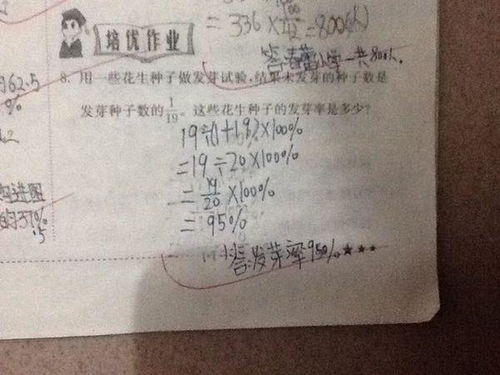 = 336 × = 800(人)
一共800人.
培优作业
62.5
%
8. 用一些花生种子做发芽试验,结果未发芽的种子数是
发芽种子数的1/19。这些花生种子的发芽率是多少?
19÷(1+19)×100%
=19÷20×100%
=19/20×100%
=95%
答:发芽率95%
进图
的37%
.5